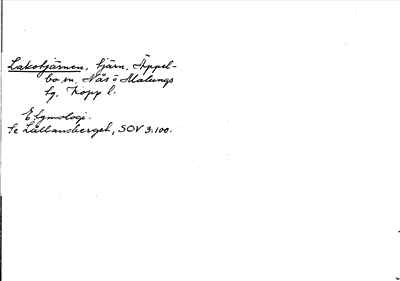 Lakotjärnen, tjärn, Äppel-
bo sn, Nås o Malungs
tg, Kopp l.
Etymologi.
Se Låttansberget, SOV 3:100.